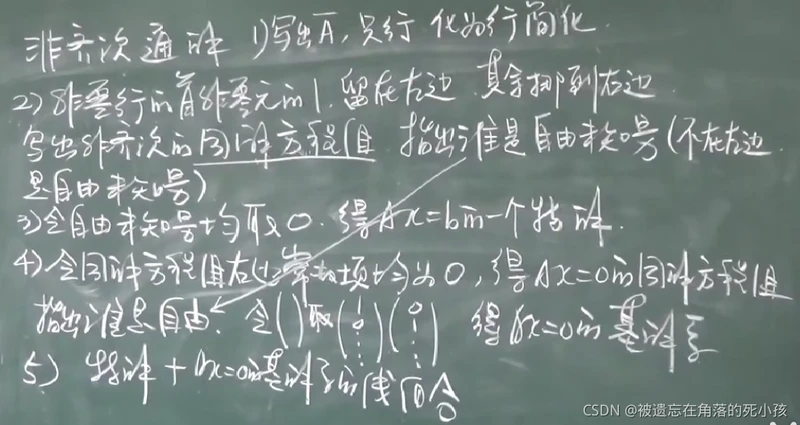 非齐次通解 1)写出A̅,只行 化为行简化.
2)非零行的首非零元的1,留在左边,其余挪到右边
写出非齐次的同解方程组 指出谁是自由未知号(不在左边
是自由未知号)
3)令自由未知号均取0.得Ax=b的一个特解.
4)令同解方程组右边常数项均为0,得Ax=0的同解方程组
指出谁是自由.令( )取(1 0 ⋮ 0)(0 1 ⋮ 0) 得Ax=0的基解系
5) 特解+Ax=0的基解系的线组合
CSDN @被遗忘在角落的死小孩